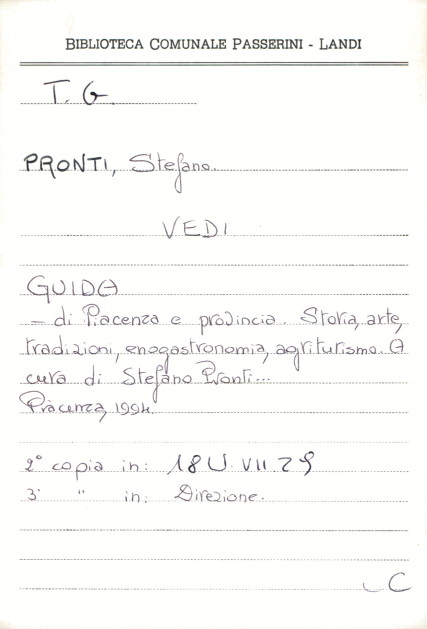 BIBLIOTECA COMUNALE PASSERINI - LANDI
T. G.
PRONTI, Stefano.
VEDI
GUIDA
- di Piacenza e provincia. Storia, arte,
tradizioni, enogastronomia, agriturismo. A
cura di Stefano Pronti...
Piacenza, 1994.
2° copia in: 18 U. VII. 29
3° " in: Direzione.